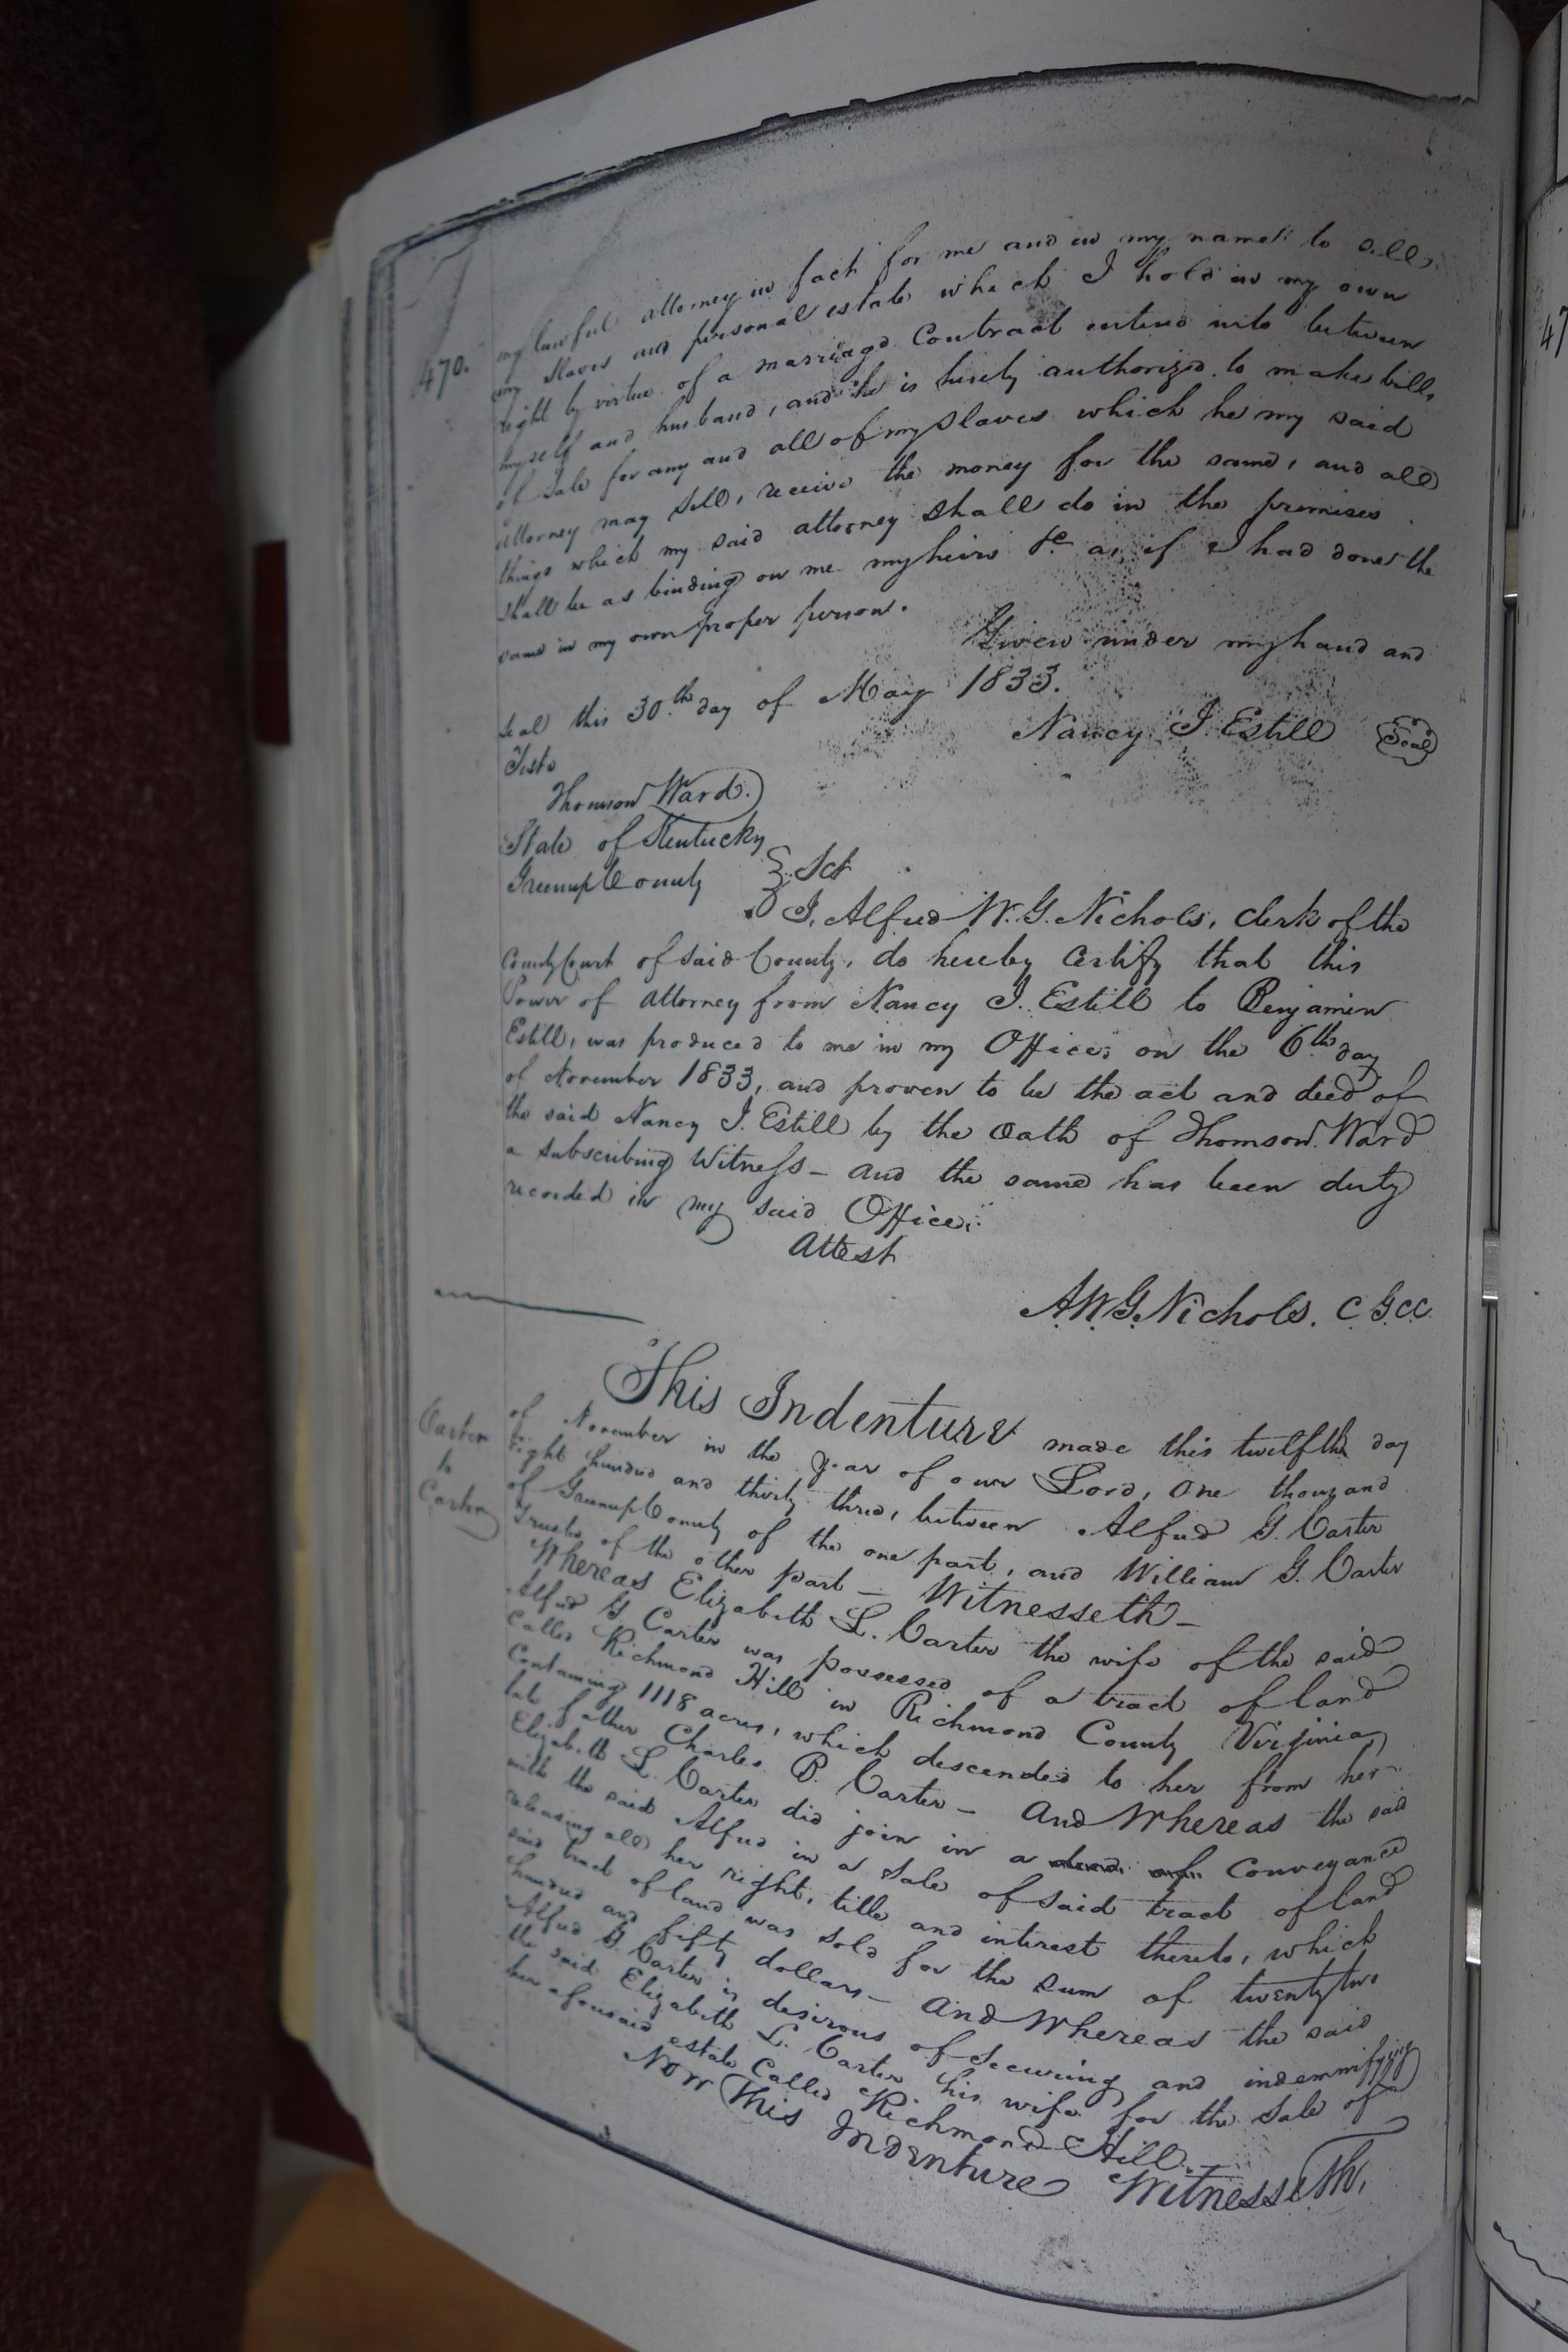 470.
my lawful attorney in fact for me and in my name to sell,
my slaves and personal estate which I hold in my own
right by virtue of a marriage Contract entered into between
myself and husband, and he is hereby authorized to make bills
of Sale for any and all of my Slaves which he my said
attorney may sell, receive the money for the same, and all
things which my said attorney shall do in the premises
shall be as binding on me my heirs &c as if I had done the
same in my own proper person.
Given under my hand and
seal this 30th day of May 1833.
Nancy I. Estill Seal
Teste
Thomson Ward.
State of Kentucky
Greenup County } Sct
I, Alfred W. G. Nichols, Clerk of the
County Court of said County, do hereby Certify that this
Power of Attorney from Nancy I. Estill to Benjamin
Estill, was produced to me in my Office, on the 6th day
of November 1833, and proven to be the act and deed of
the said Nancy I. Estill by the Oath of Thomson Ward
a subscribing Witness - and the same has been duly
recorded in my said Office.
Attest
A. W. G. Nichols. C G C C
Carter
to
Carter
This Indenture made this twelfth day
of November in the year of our Lord, One thousand
Eight hundred and thirty three, between Alfred G. Carter
of Greenup County of the one part, and William G. Carter
Trustee of the other part - Witnesseth -
Whereas Elizabeth L. Carter the wife of the said
Alfred G Carter was possessed of a tract of land
Called Richmond Hill in Richmond County Virginia,
Containing 1118 acres, which descended to her from her
late father Charles B. Carter - And Whereas the said
Elizabeth L. Carter did join in a deed of Conveyance
with the said Alfred in a Sale of said tract of land
releasing all her right, title and interest thereto, which
said tract of land was sold for the sum of twenty two
hundred and fifty dollars - And Whereas the said
Alfred G. Carter is desirous of Securing and indemnifying
the said Elizabeth L. Carter his wife for the Sale of
her aforesaid estate Called Richmond Hill.
Now This Indenture Witnesseth,
47